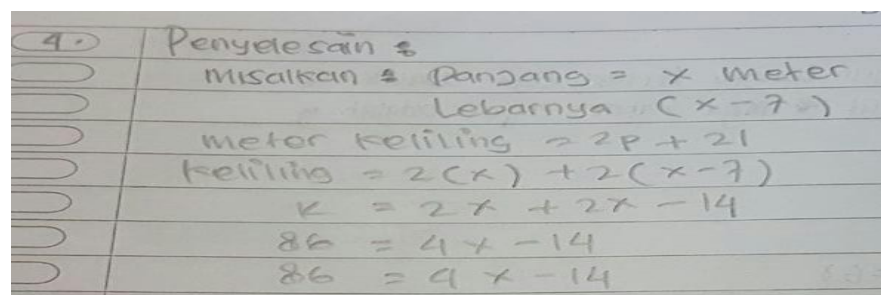 4. Penyelesain :
misalkan : Panjang = x meter
Lebarnya (x-7)
meter keliling = 2p + 2l
keliling = 2(x) + 2(x-7)
K = 2x + 2x - 14
86 = 4x - 14
86 = 4x - 14